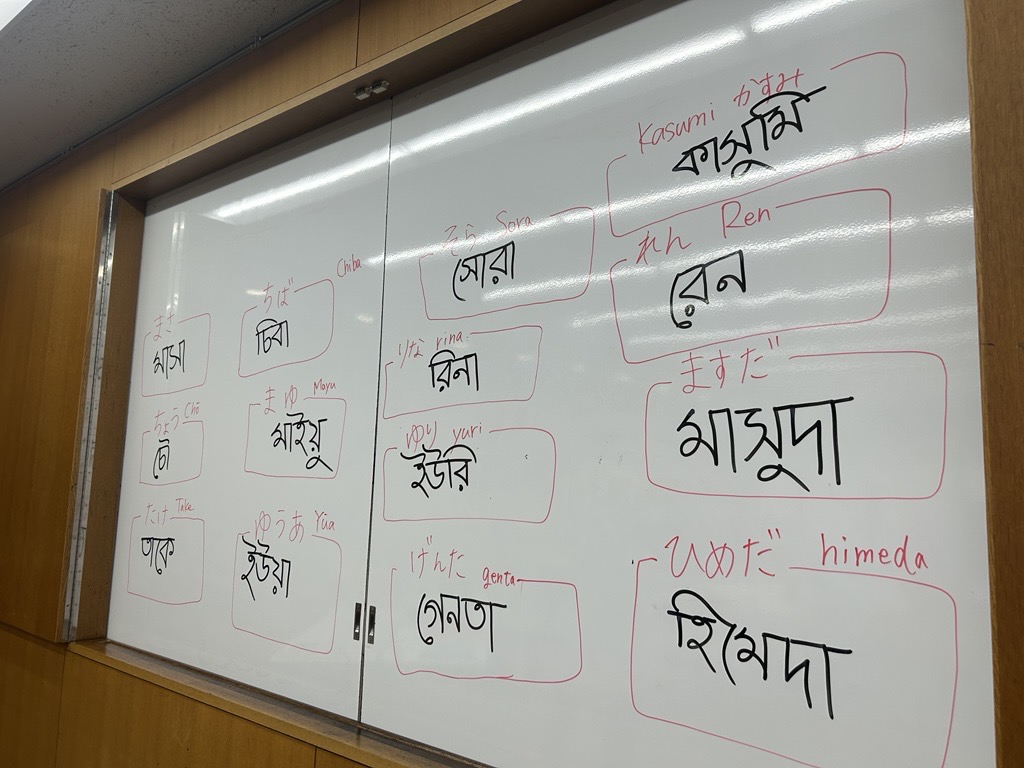 まさ
মাসা
ちょう Chō
চৌ
たけ Take
তাকে
ちば Chiba
চিবা
まゆ Mayu
মাইয়ু
ゆうあ Yūa
ইউয়া
そら Sora
সোরা
りな rina
রিনা
ゆり yuri
ইউরি
げんた genta
গেনতা
Kasumi かすみ
কাসুমি
れん Ren
রেন
ますだ
মাসুদা
ひめだ himeda
হিমেদা